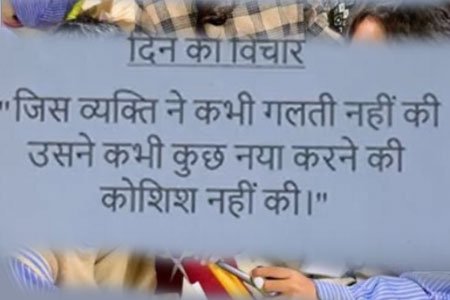 दिन का विचार
"जिस व्यक्ति ने कभी गलती नहीं की
उसने कभी कुछ नया करने की
कोशिश नहीं की।"